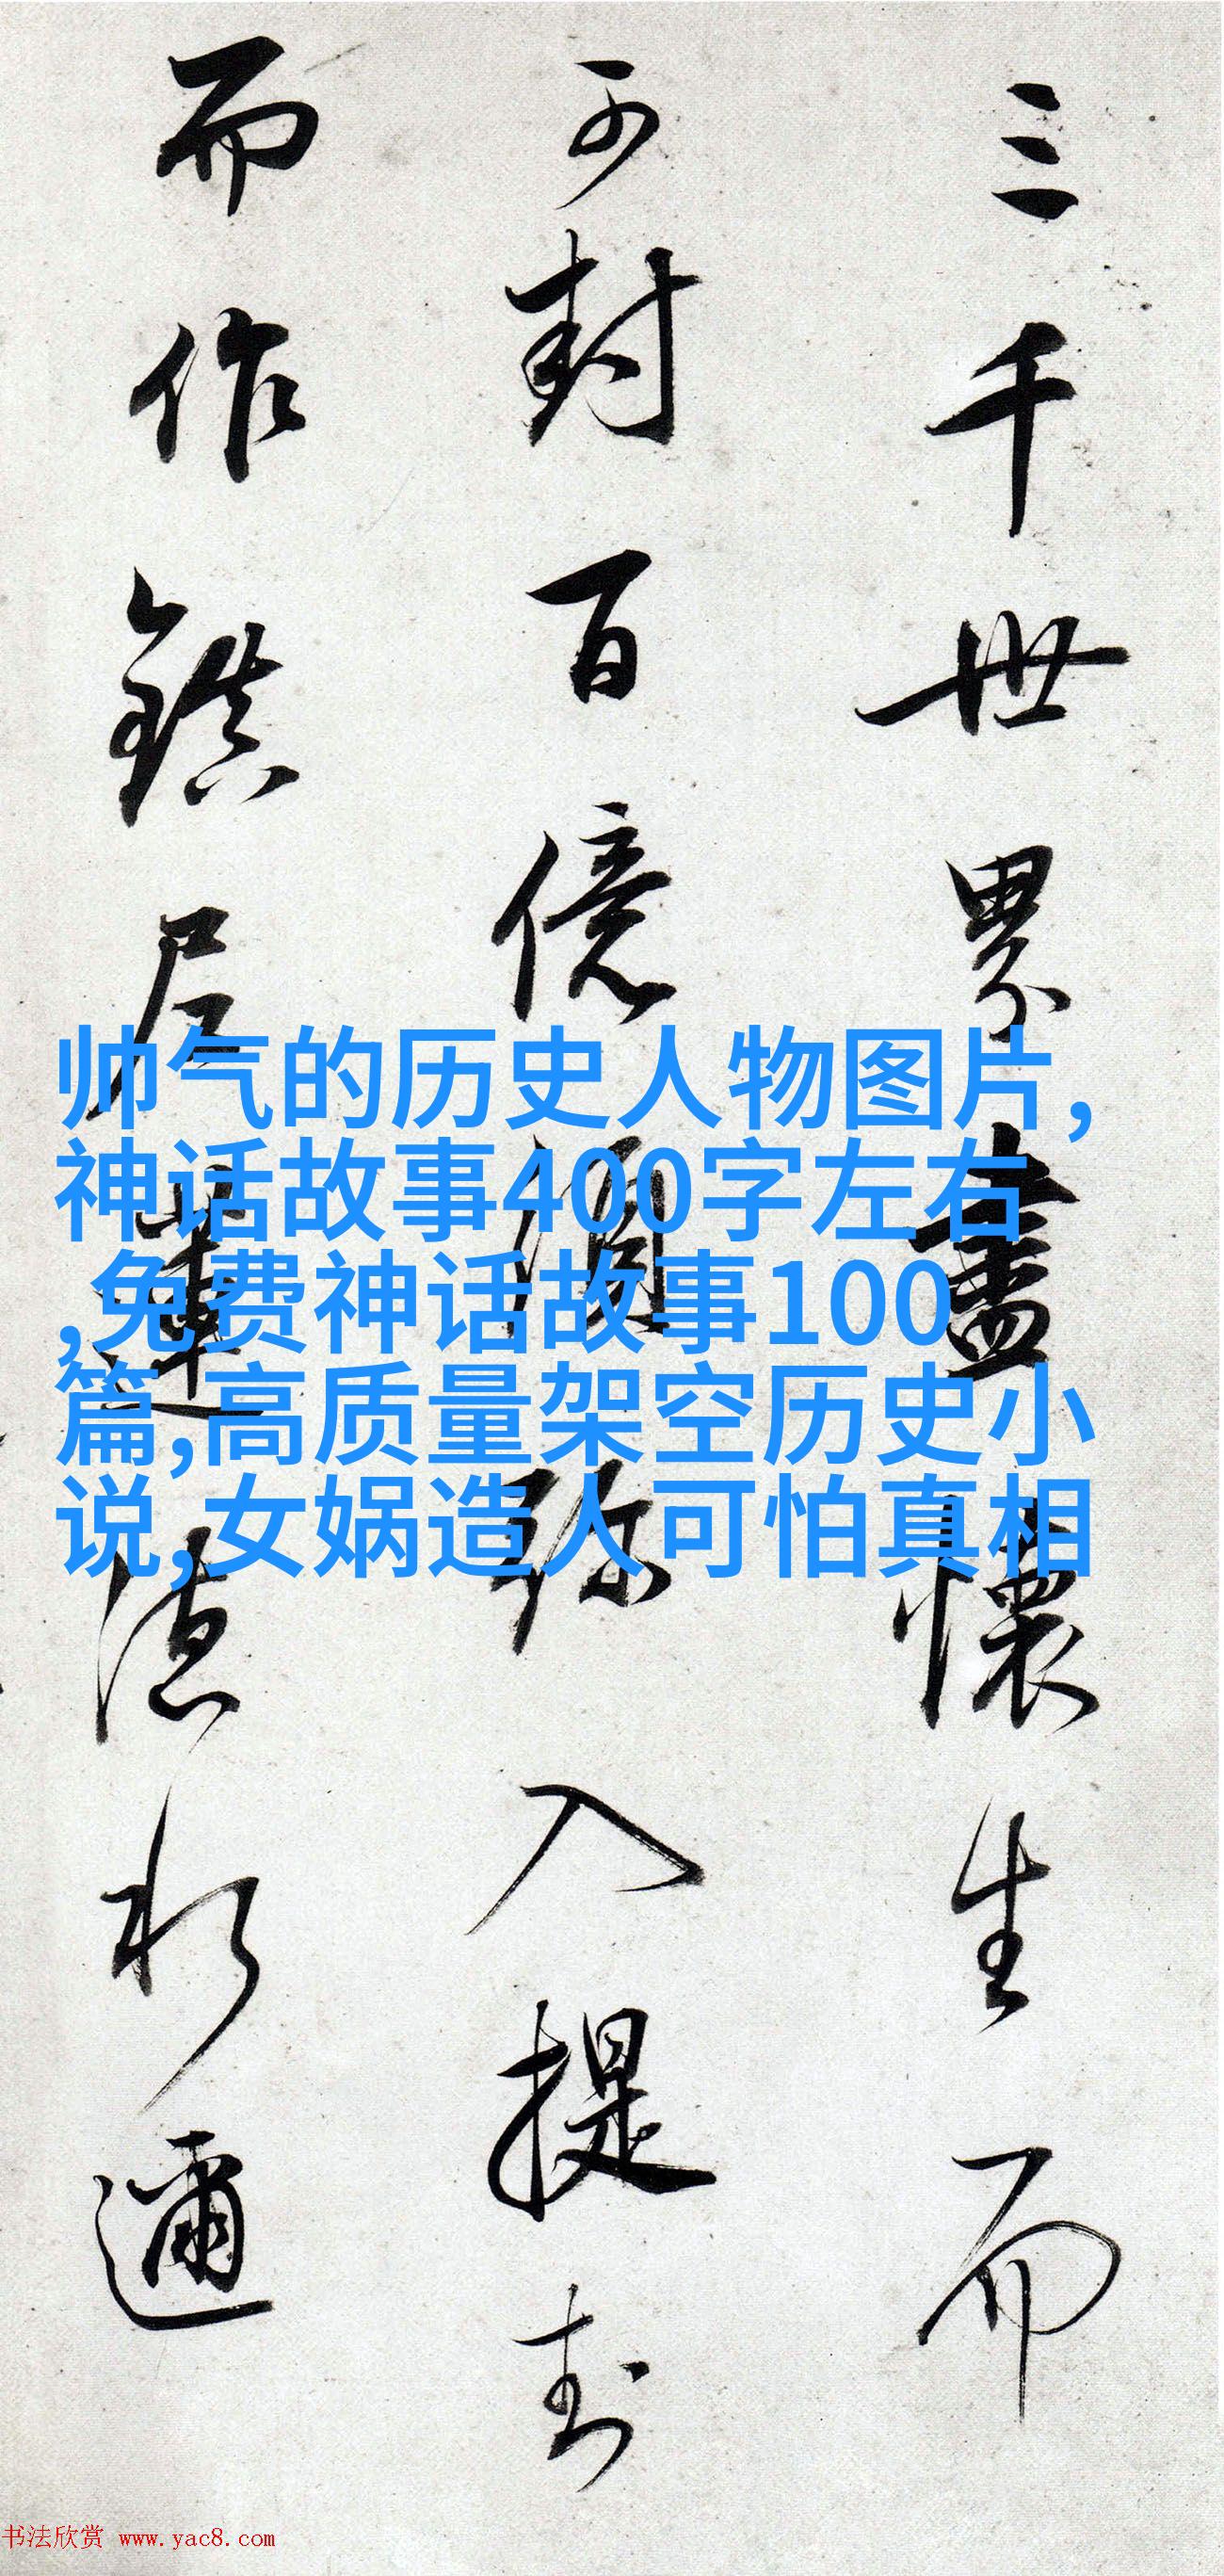 三千世界盡懷生而
可封百億須彌入提封
而作鎮尼蓮德水邇
帅气的历史人物图片,
神话故事400字左右
,免费神话故事100
篇,高质量架空历史小
说,女娲造人可怕真相
书法欣赏 www.yac8.com